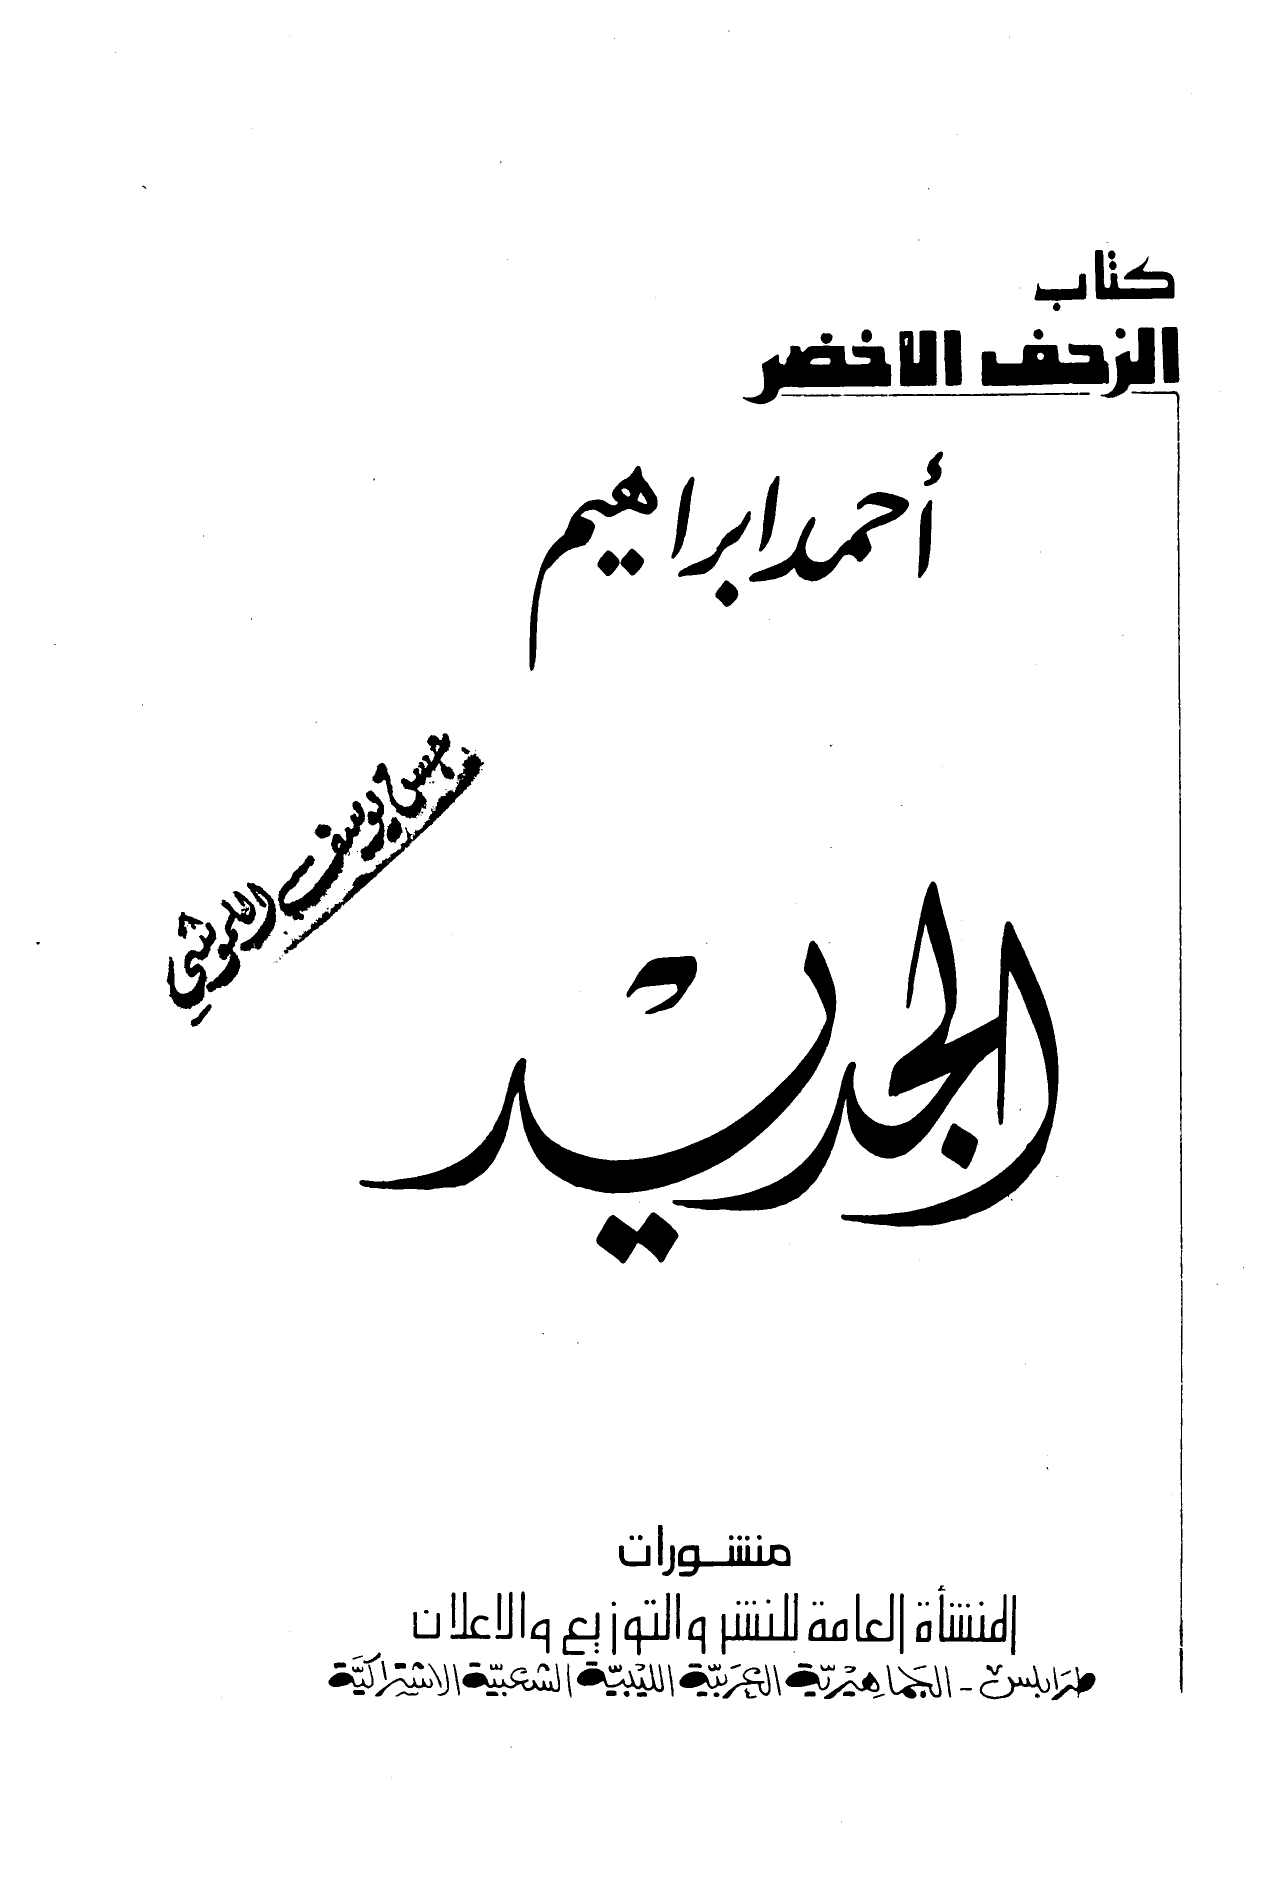 كتاب
الزحف الاخضر
أحمد ابراهيم
يوسف
الجديد
منشورات
المنشأة العامة للنشر والتوزيع والاعلان
طرابلس - الجماهيرية العربية الليبية الشعبية الاشتراكية